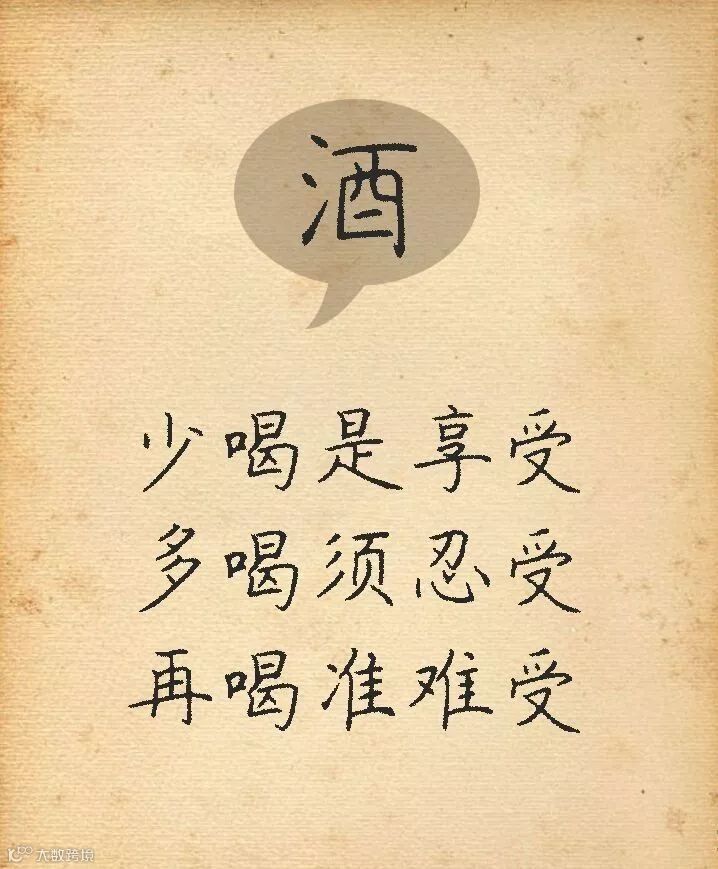 酒
少喝是享受
多喝须忍受
再喝准难受
大数跨境